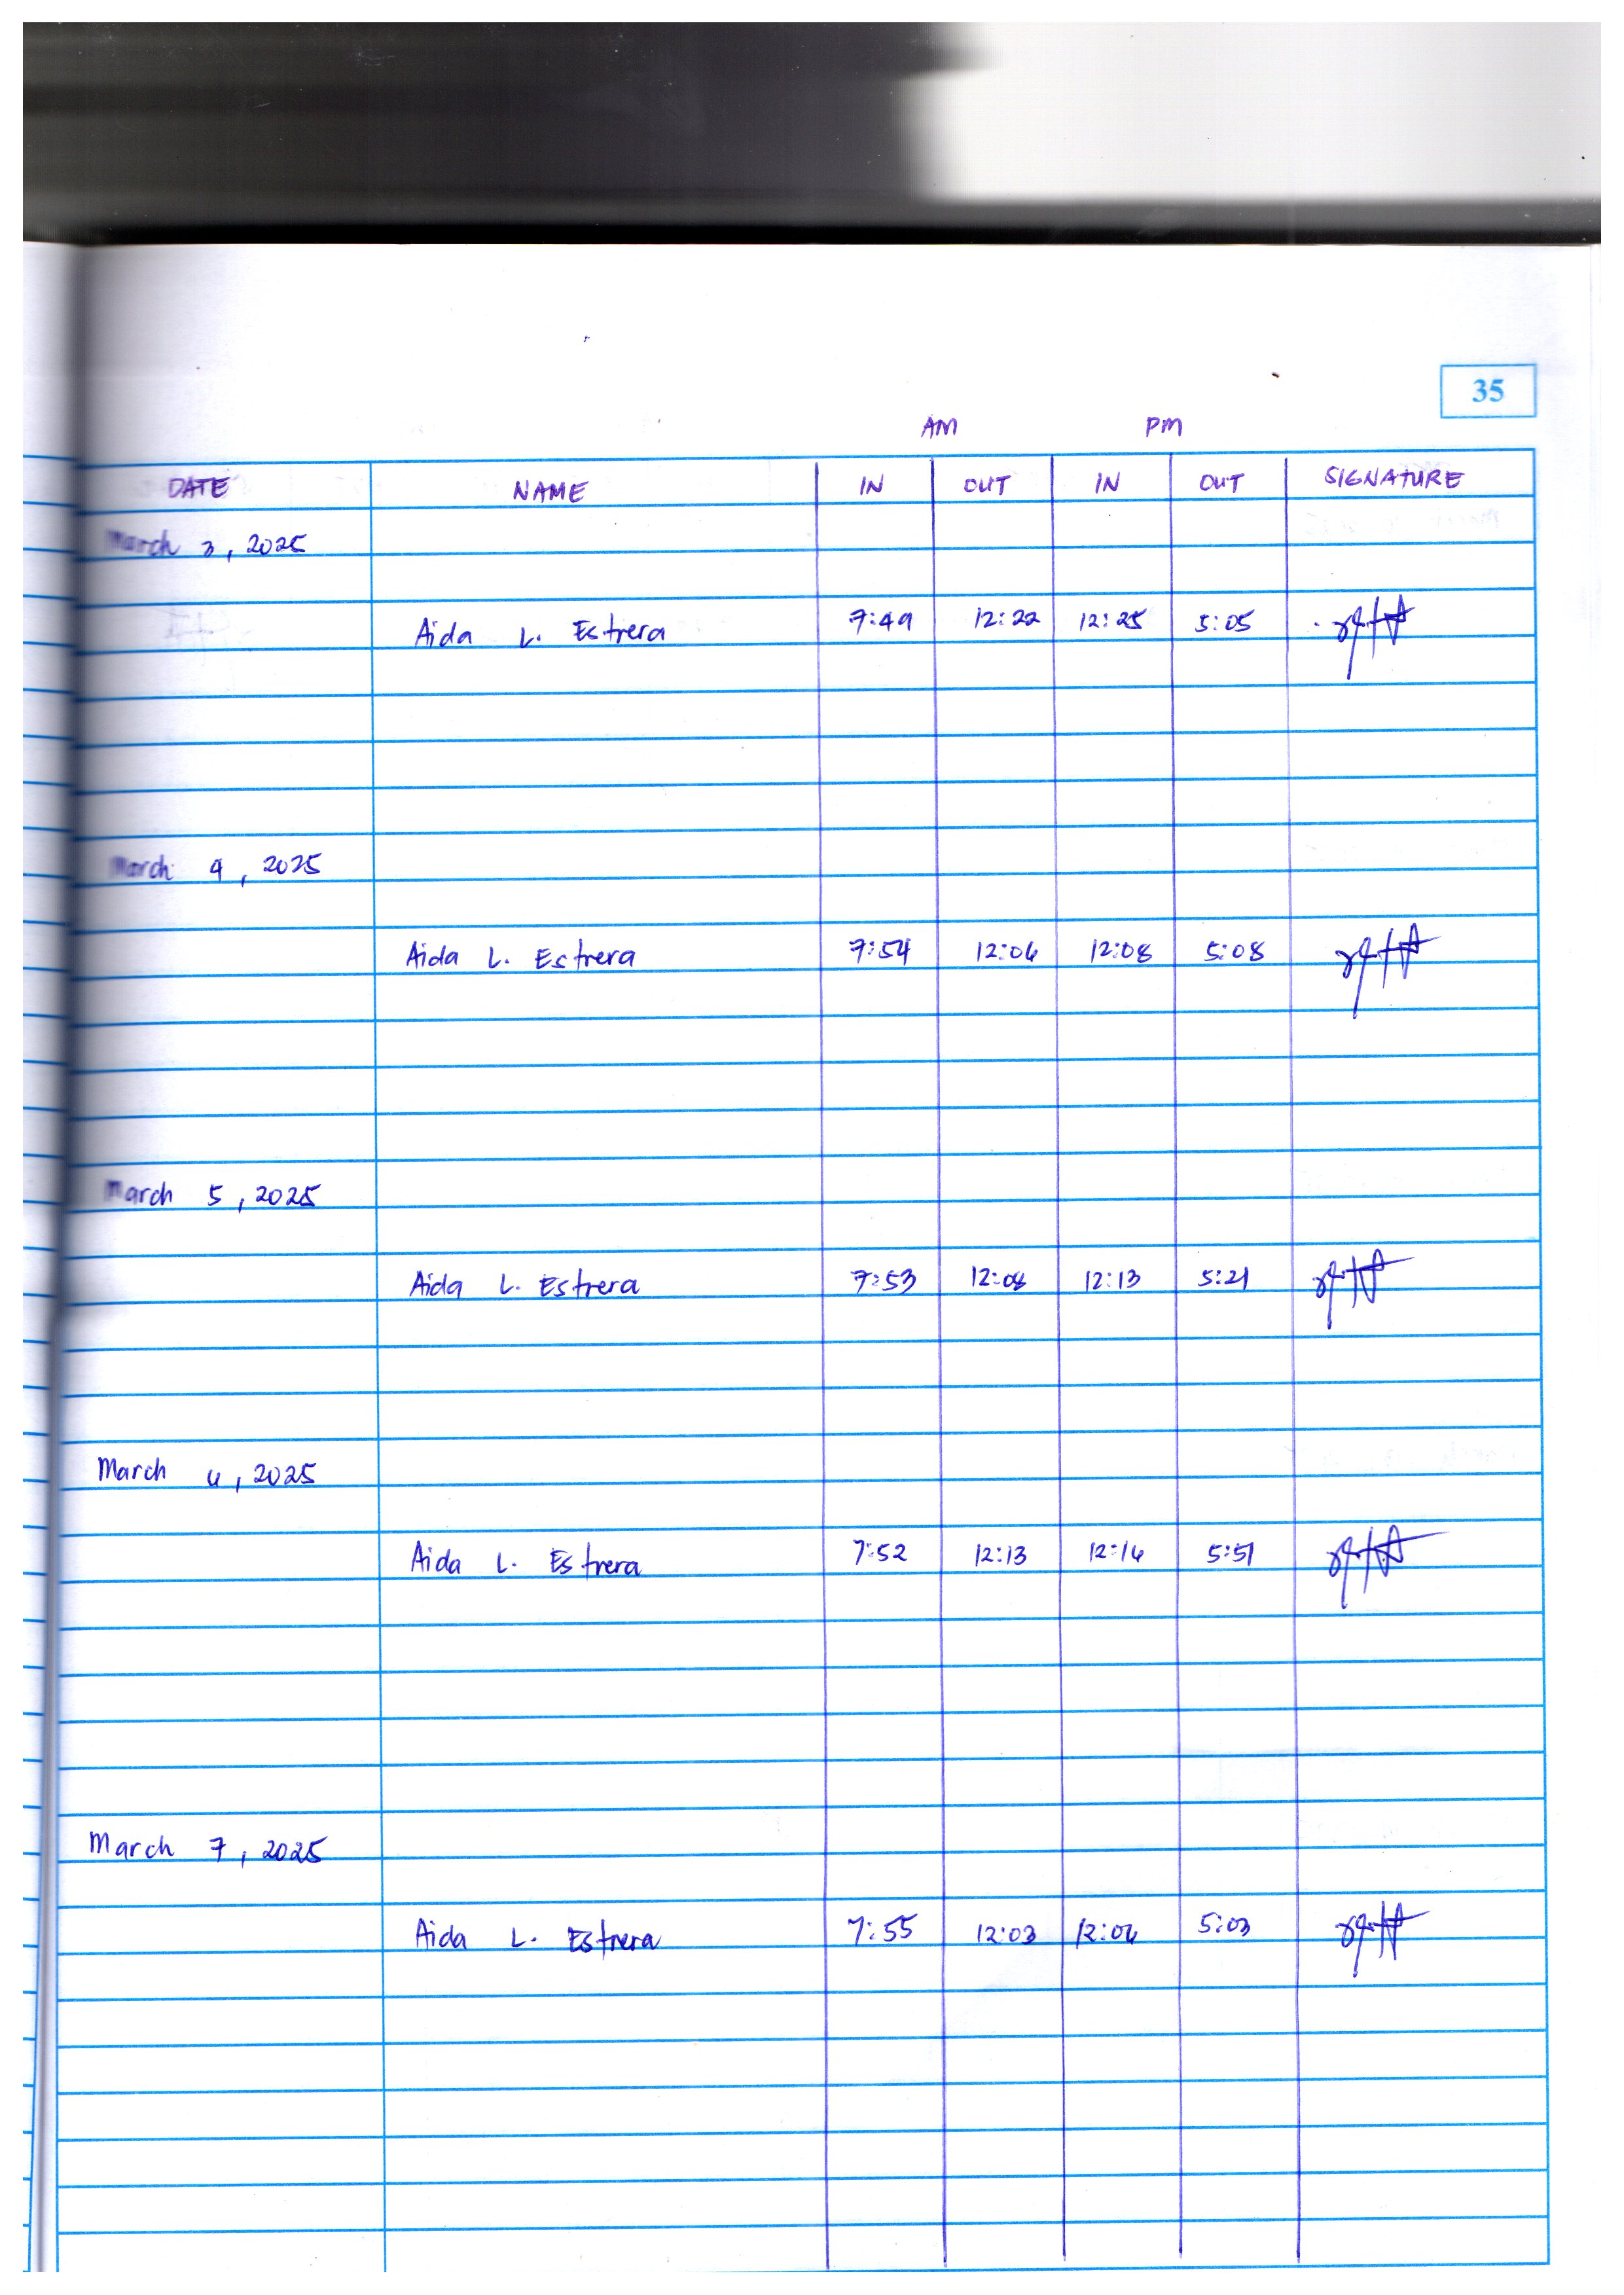 35
AM PM
DATE NAME IN OUT IN OUT SIGNATURE
March 3, 2025
Aida L. Estrera 7:49 12:22 12:25 5:05
March 4, 2025
Aida L. Estrera 7:54 12:06 12:08 5:08
March 5, 2025
Aida L. Estrera 7:53 12:08 12:13 5:21
March 6, 2025
Aida L. Estrera 7:52 12:13 12:16 5:51
March 7, 2025
Aida L. Estrera 7:55 12:03 12:06 5:03